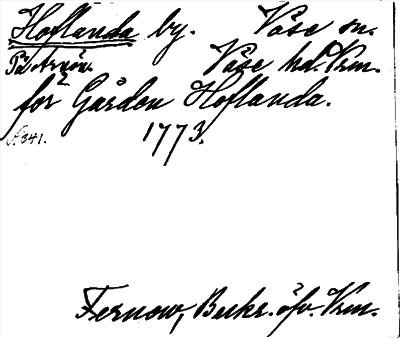 Hoflanda by. Väse sn.
På Arnön. Väse hd. Vrm.
för Gården Hoflanda.
S. 341. 1773.
Fernow, Beskr. öfv. Vrm.